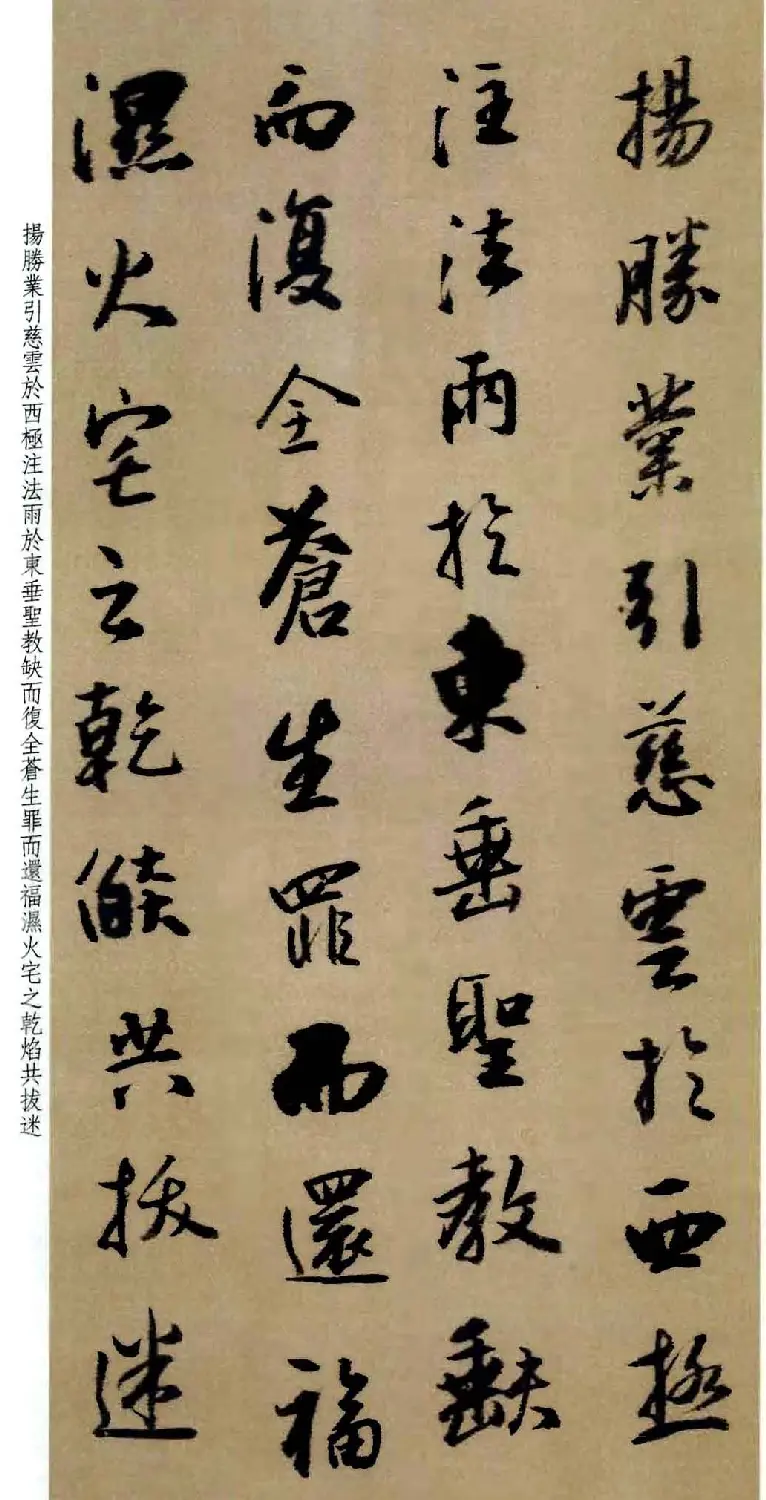 揚勝業引慈雲於西極
注法雨於東垂聖教缺
而復全蒼生罪而還福
濕火宅之乾焰共拔迷
揚勝業引慈雲於西極注法雨於東垂聖教缺而復全蒼生罪而還福濕火宅之乾焰共拔迷